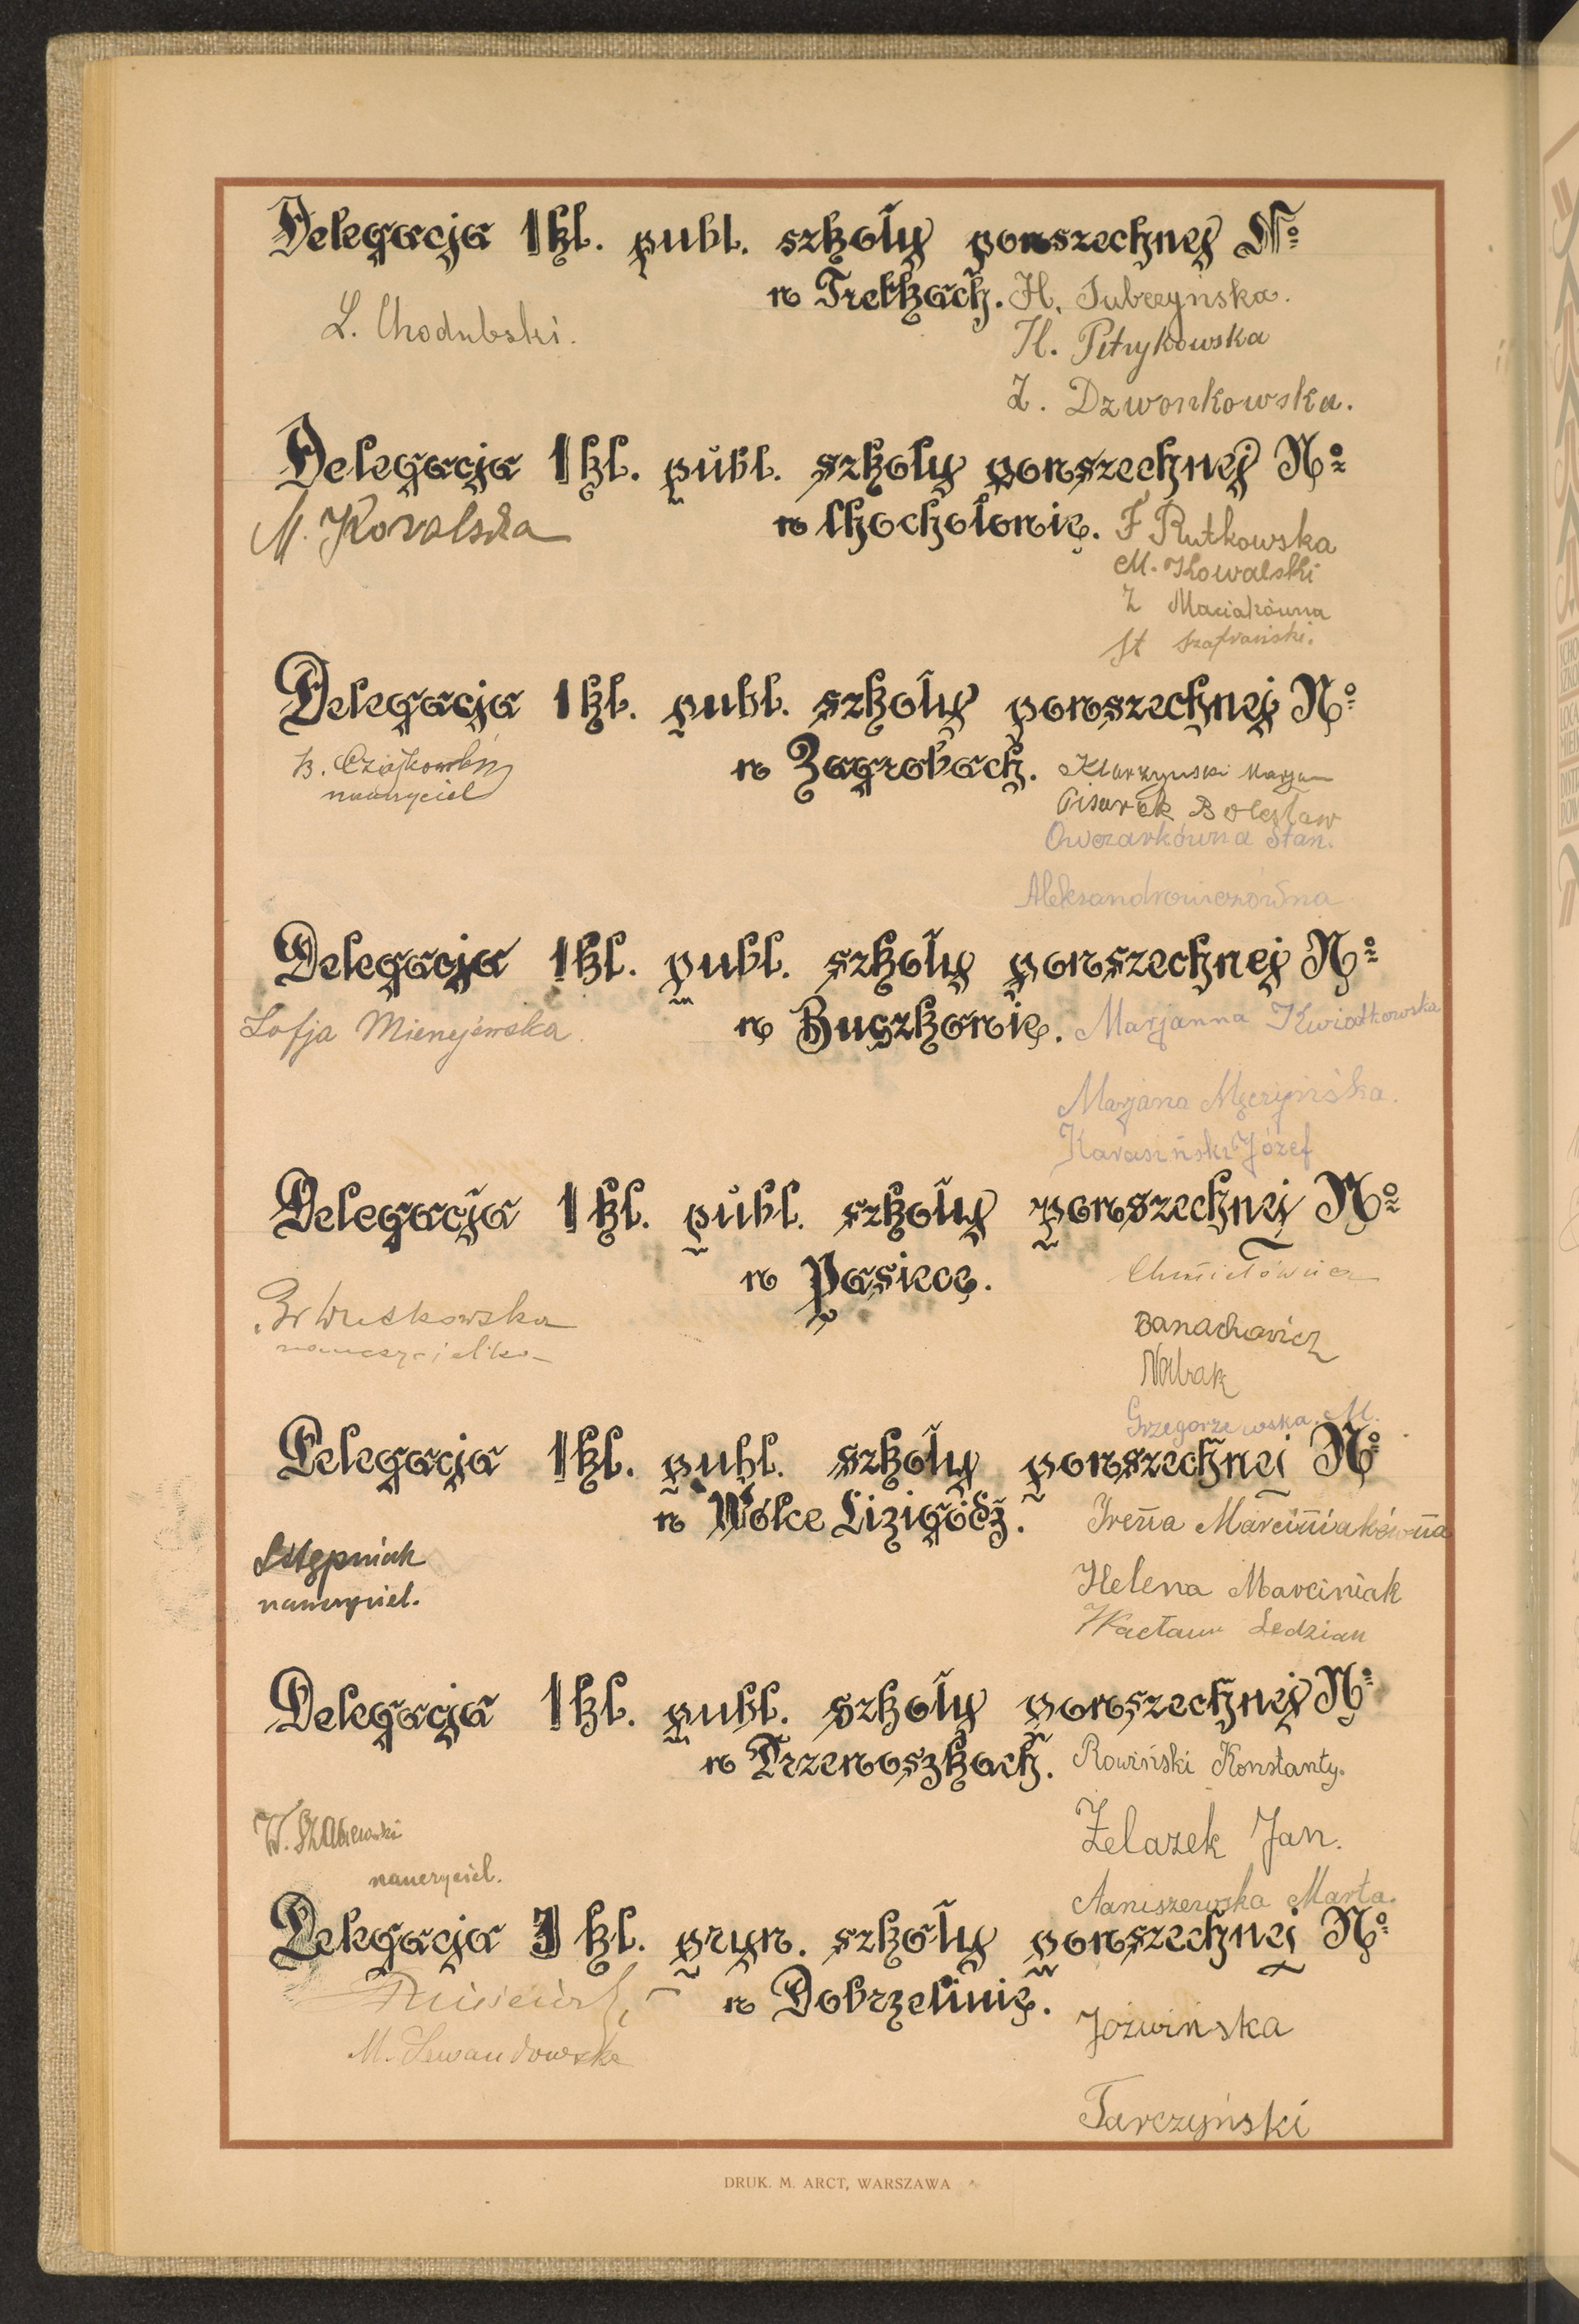 Delegacja 1 kl. publ. szkoły powszechnej №
w Tretkach. H. Lubczyńska.
L. Chodubski. H. Petrykowska
Z. Dzwonkowska.
Delegacja 1 kl. publ. szkoły powszechnej №
M. Kowalska w Chochołowie. F Rutkowska
M. Kowalski
Z Maciakówna
St Szafrański.
Delegacja 1 kl. publ. szkoły powszechnej №
B. Czajkowski w Zagrobach. Klarzyński Marjan
nauczyciel Pisarek Bolesław
Owczarkówna Stan.
Aleksandrowiczówna
Delegacja 1 kl. publ. szkoły powszechnej №
Zofja Mieniejewska w Buszkowie. Marjanna Kwiatkowska
Marjana Męczyńska.
Karasiński Józef
Delegacja 1 kl. publ. szkoły powszechnej №
w Pasiece. Chmielówna
nauczycielka Banachowicz
Grzegorzewska M.
Delegacja 1 kl. publ. szkoły powszechnej №
w Wólce Lizigódź. Irena Marciniakówna
Stępniak Helena Marciniak
nauczyciel. Wacław Ledzian
Delegacja 1 kl. publ. szkoły powszechnej №
w Drzewoszkach. Rowiński Konstanty.
W. Żelazek Jan.
nauczyciel. Janiszewska Marta.
Delegacja 3 kl. pryw. szkoły powszechnej №
w Dobrzelinie. Jóźwińska
M. Lewandowska
Tarczyński
DRUK. M. ARCT, WARSZAWA